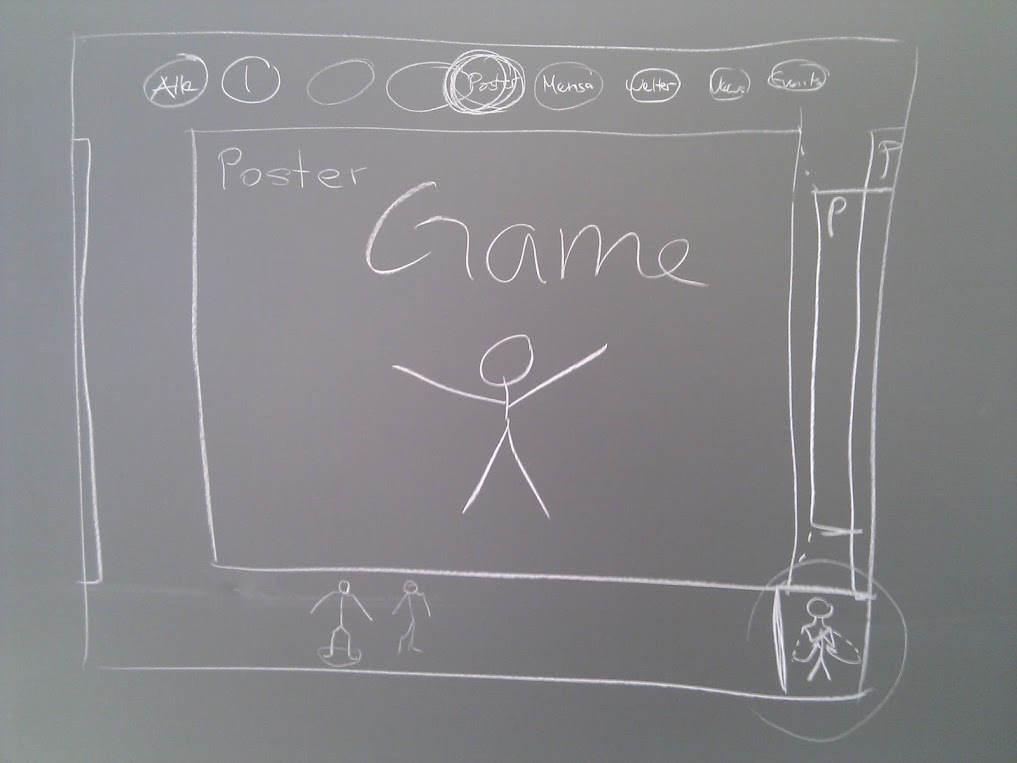 Alle 1 Poster Mensa Wetter News Events
Poster
Game
P
P